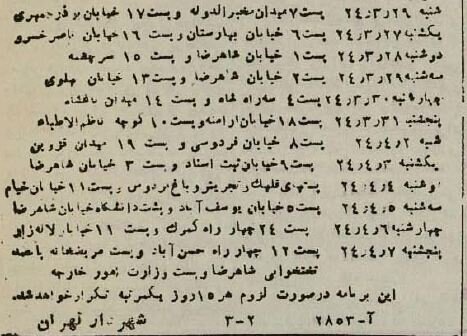 شنبه ۲۴/۳/۲۹ پست ۷ میدان مخبرالدوله و پست ۱۷ خیابان بوذرجمهری
یکشنبه ۲۴/۳/۲۷ پست ۶ خیابان بهارستان و پست ۱۶ خیابان ناصرخسرو
دوشنبه ۲۴/۳/۲۸ پست ۱ خیابان شاهرضا و پست ۱۵ سرچشمه
سه‌شنبه ۲۴/۳/۲۹ پست ۲ خیابان شاهرضا و پست ۱۳ خیابان پهلوی
چهارشنبه ۲۴/۳/۳۰ پست ۴ سه‌راه شاه و پست ۱۴ میدان باغشاه
پنجشنبه ۲۴/۳/۳۱ پست ۱۸ خیابان ارامنه و پست ۱۰ کوچه ناظم‌الاطباء
شنبه ۲۴/۴/۲ پست ۸ خیابان فردوسی و پست ۱۹ میدان قزوین
یکشنبه ۲۴/۴/۳ پست ۹ خیابان ثبت اسناد و پست ۳ خیابان شاهرضا
دوشنبه ۲۴/۴/۴ پستهای قلهک و تجریش و باغ فردوس و پست ۱۱ خیابان خیام
سه‌شنبه ۲۴/۴/۵ پست ۵ خیابان یوسف آباد و پشت دانشگاه خیابان شاهرضا
چهارشنبه ۲۴/۴/۶ پست ۲۴ چهار راه گمرک و پست ۱۱ خیابان لاله‌زار
پنجشنبه ۲۴/۴/۷ پست ۱۲ چهار راه حسن‌آباد و پست مریضخانه پانصد
تختخوابی شاهرضا و پست وزارت امور خارجه
این برنامه درصورت لزوم هر ۱۵ روز یکمرتبه تکرار خواهد شد.
آ-۲۸۵۳ ۳-۲ شهردار تهران